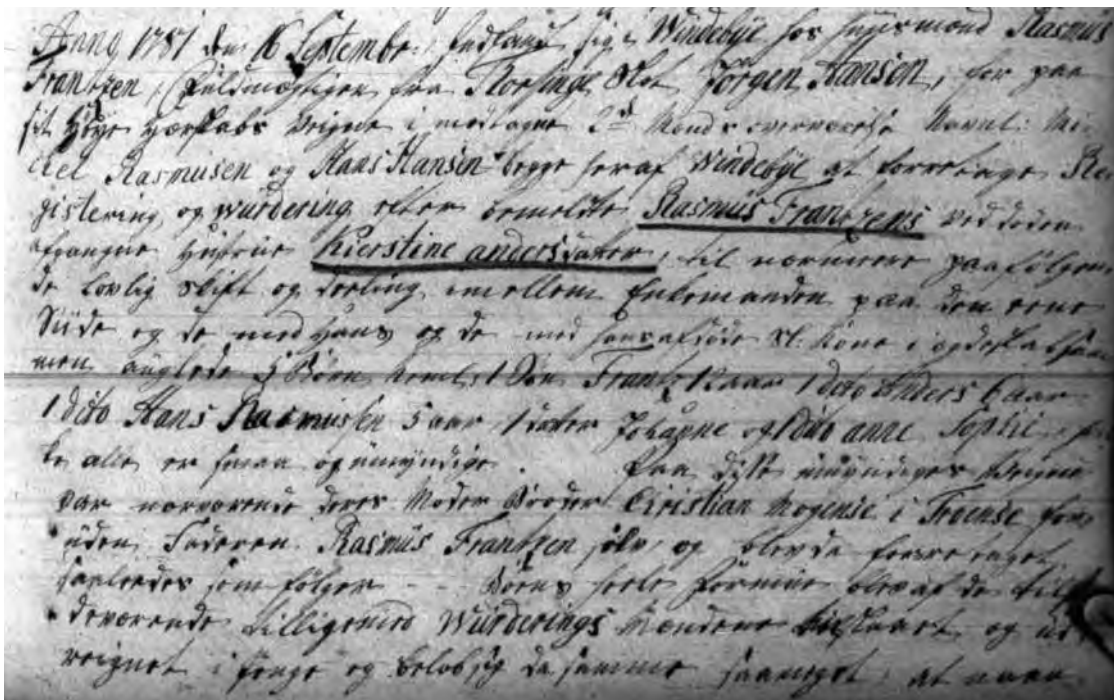 Anno 1787 den 16 Septembr: indfandt sig i Windebÿe hos Huusmand Rasmus
Frantzen, Fuldmægtigen fra Slot Jörgen Hansen, for paa
sit Höye Herskabs Veigne i 2de Mænds overværelse Navnl: Mi-
chel Rasmusen og Hans Hansen begge her af Windebÿe at forretage Re
gistering, og wurdering efter bemeldte Rasmus Frantzens ved döden
afgangne Hustrue Kierstine andersdatter, til nærmere paafölgen
de Lovlig skift og deeling imellem Enkemanden paa den eene
Siide og de med hans og de med Sl: Kone i ægdeskab sam
men auglede 5 Börn, neml: 1 Sön Frantz 12 aar 1 dito Anders 6 aar
1 dito Hans Rasmussen 5 aar, 1 dater Johanne og 1 dito anne Sophie,
alle er smaa og umyndige. Paa disse umyndiges Veigne
var nærværende deres Moder Broder Christian Mogense i Troense for
uden Faderen Rasmus Frantzen sölv, og blev da foretaget
saaledes som fölger - - Boens heele Formue blev af de til
- deværende tilligemed Wurderings Mændene og ud
reignet i Penge og belöb sig da samme saameget, at naar